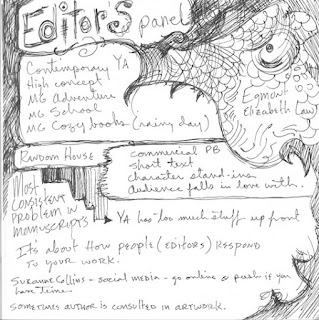 Editor's panel
Contemporary YA
High concept
MG Adventure
MG School
MG Cozy books (rainy day)
Egmont
Elizabeth Law
Random House
commercial PB
short text
character stand-ins
audience falls in love with.
Most
consistent
problem in
manuscripts
YA has too much stuff up front
It's about how people (editors) respond
to your work.
Suzanne Collins - social media - go online & push if you
have time
Sometimes author is consulted in artwork.